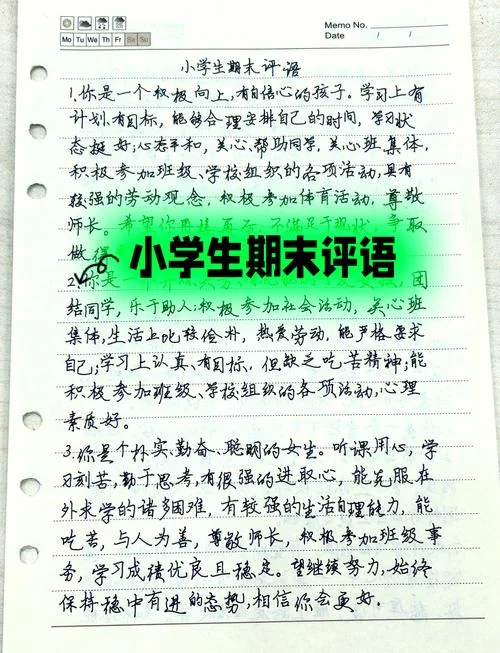 Memo No.
Date / /
Mo Tu We Th Fr Sa Su
小学生期末评语
1.你是一个积极向上,有自信心的孩子。学习上有
计划、有目标,能够合理安排自己的时间,学习状
态挺好;心态平和,关心、帮助同学,关心班集体,
积极参加班级、学校组织的各项活动,具有
较强的劳动观念,积极参加体育活动,尊敬
师长。希望你再接再厉,不满足于现状,争取
做得
小学生期末评语
2.你是一个 团
结同学,乐于助人;积极参加社会活动,关心班
集体,生活上比较俭朴,热爱劳动,能严格要求
自己;学习上认真、有目标,但缺乏吃苦精神;能
积极参加班级、学校组织的各项活动,心理
素质好。
3.你是个朴实、勤奋、聪明的女生。听课用心,学
习刻苦,勤于思考,有很强的进取心,能克服在
外求学的诸多困难,有较强的生活自理能力,能
吃苦,与人为善,尊敬师长,积极参加班级事
务,学习成绩优良且稳定。望继续努力,始终
保持稳中有进的态势,相信你会更好.